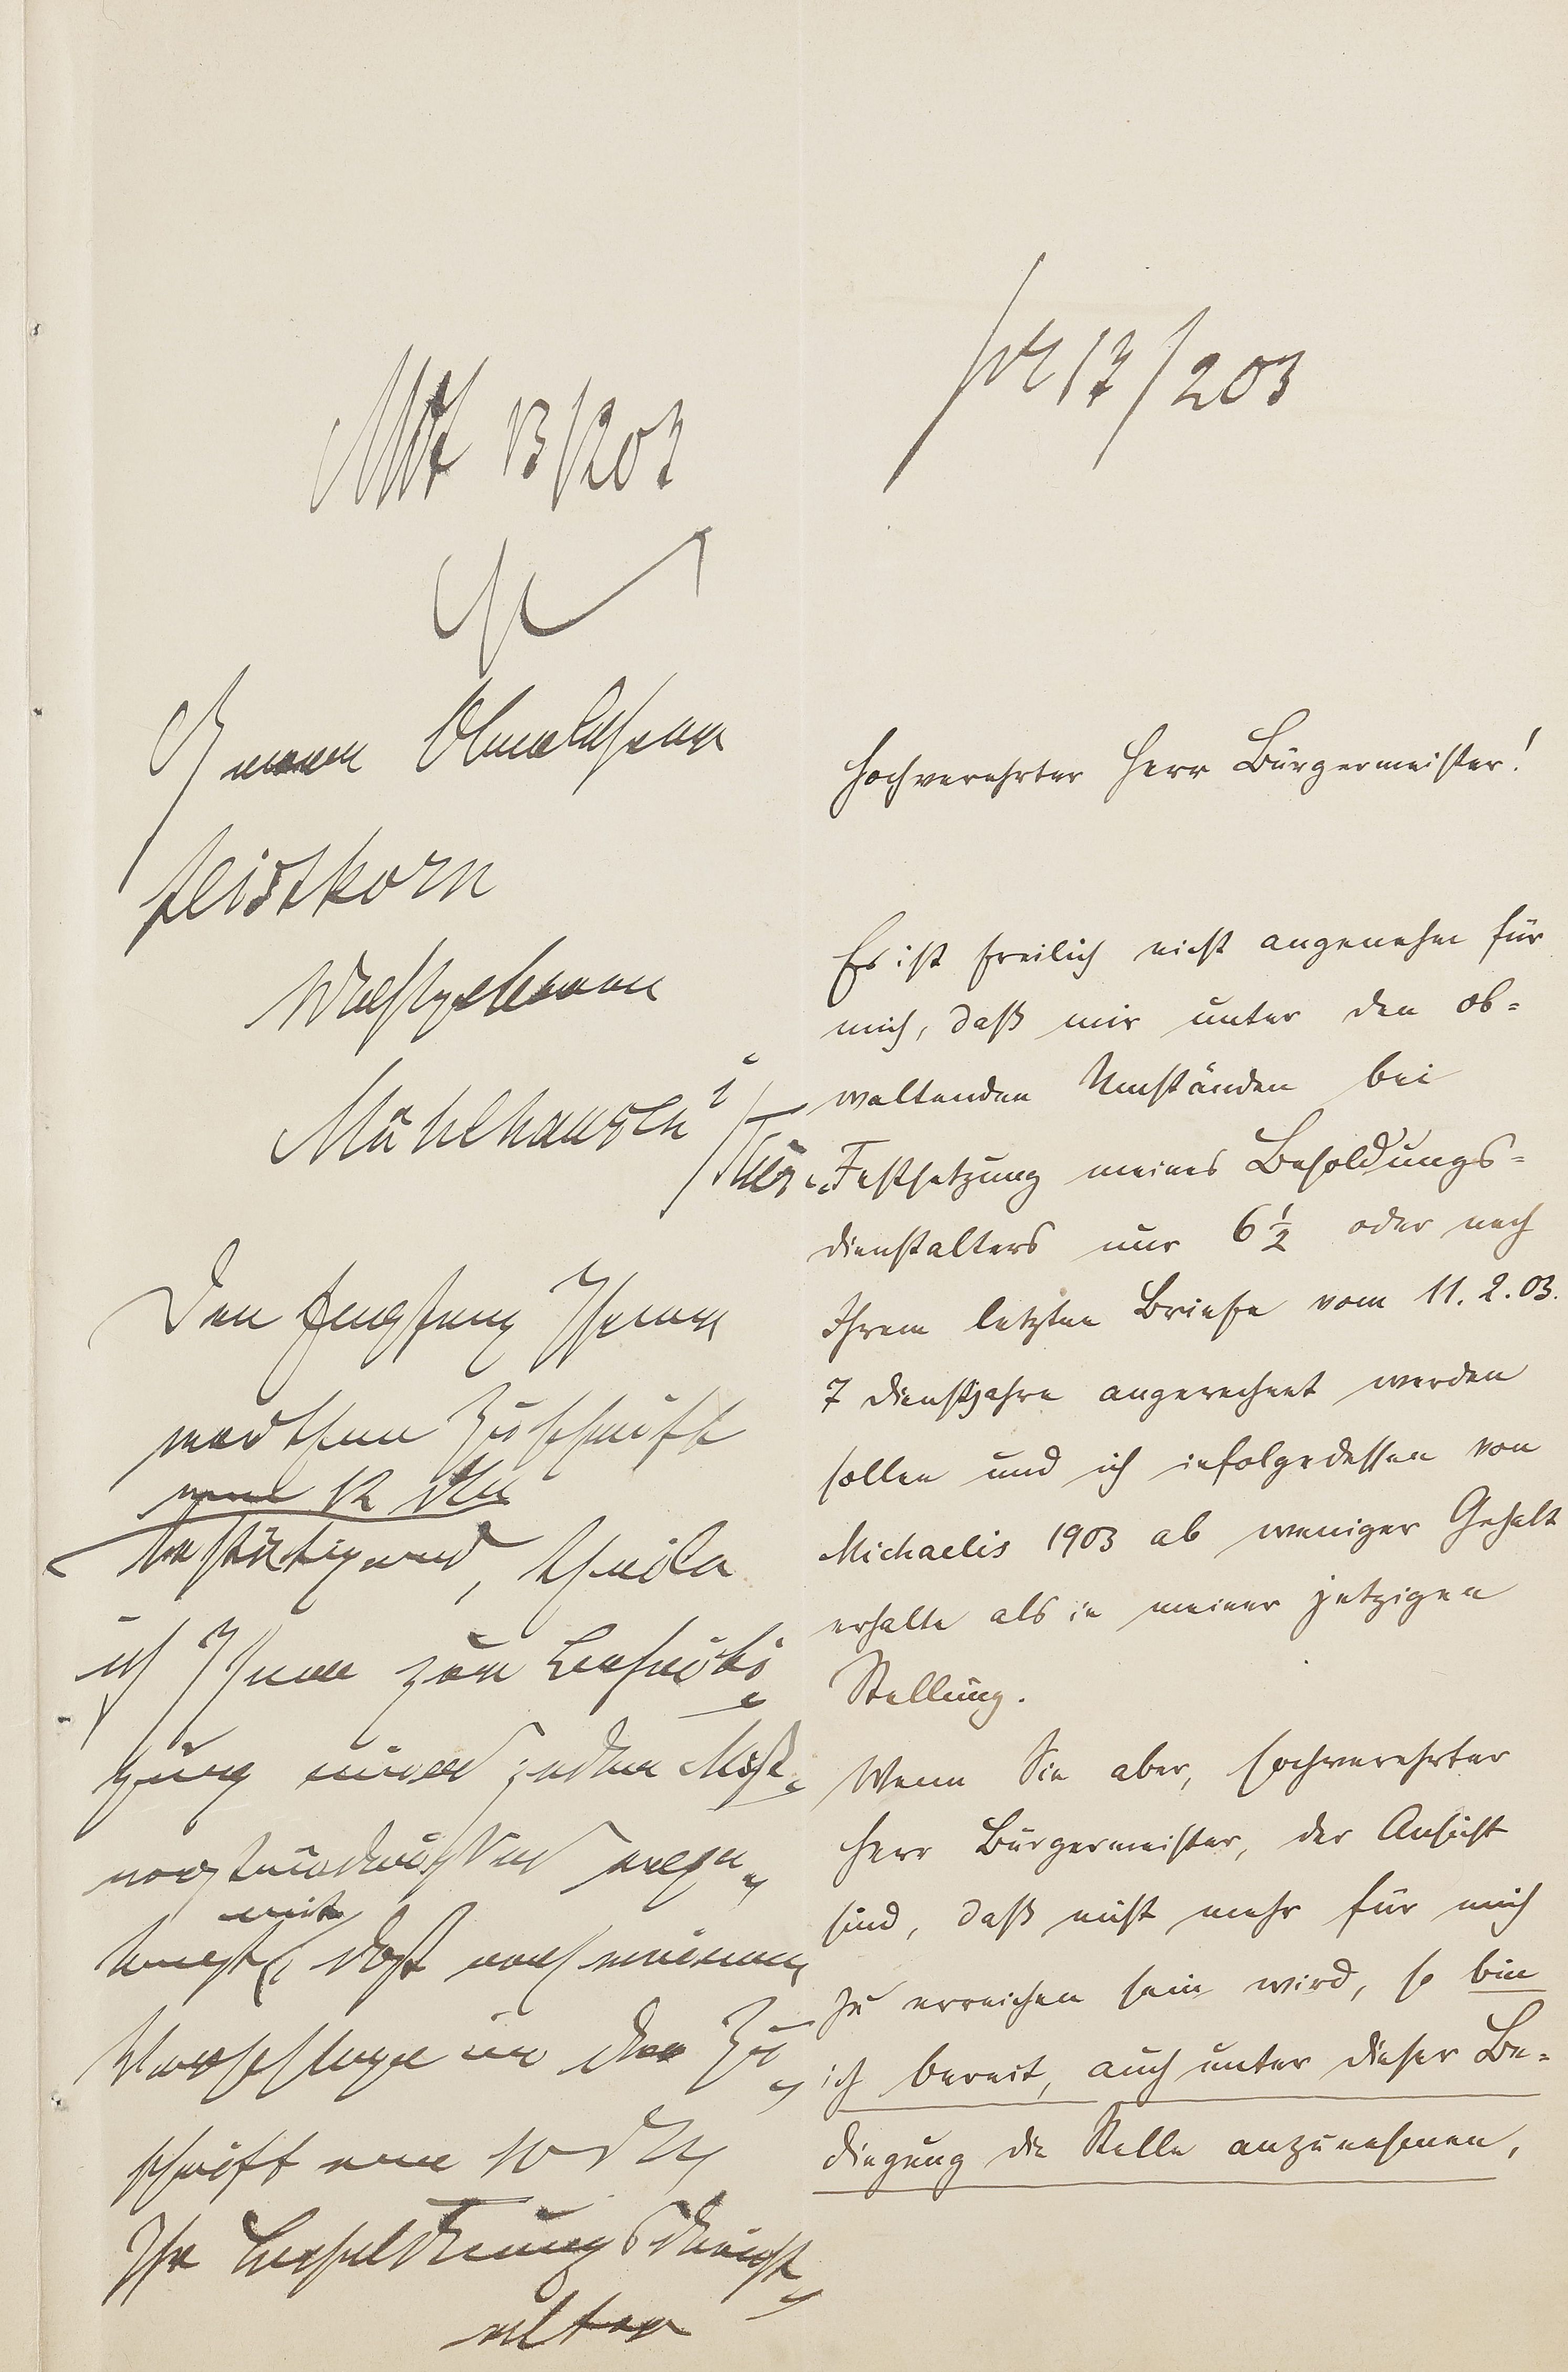 13/2 03
pr 13/2 03
Herrn Oberlehrer
Fleischkorn
Wohlgeboren
Mühlhausen i
Thür.
Den Empfang Ihrer
werthen Zuschrift
vom 12 d M
bestätigend, theile
ich Ihnen zur Beseiti-
gung eines jeden Miß-
verständnisses ergeb-
mit
enst, daß nach meinem
Vorschlage in der Zu-
schrift vom 10 d M
Ihr Besoldungsdienst-
alter
Hochverehrter Herr Bürgermeister!
Es ist freilich nicht angenehm für
mich, daß mir unter den ob-
waltenden Umständen bei
Festsetzung meines Besoldungs-
dienstalters nur 6 1/2 oder nach
Ihrem letzten Briefe vom 11. 2. 03.
7 Dienstjahre angerechnet werden
sollen und ich infolgedessen von
Michaelis 1903 ab weniger Gehalt
erhalte als in meiner jetzigen
Stellung.
Wenn Sie aber, hochverehrter
Herr Bürgermeister, der Ansicht
sind, daß nicht mehr für mich
zu erreichen sein wird, so bin
ich bereit, auch unter dieser Be-
dingung die Stelle anzunehmen,